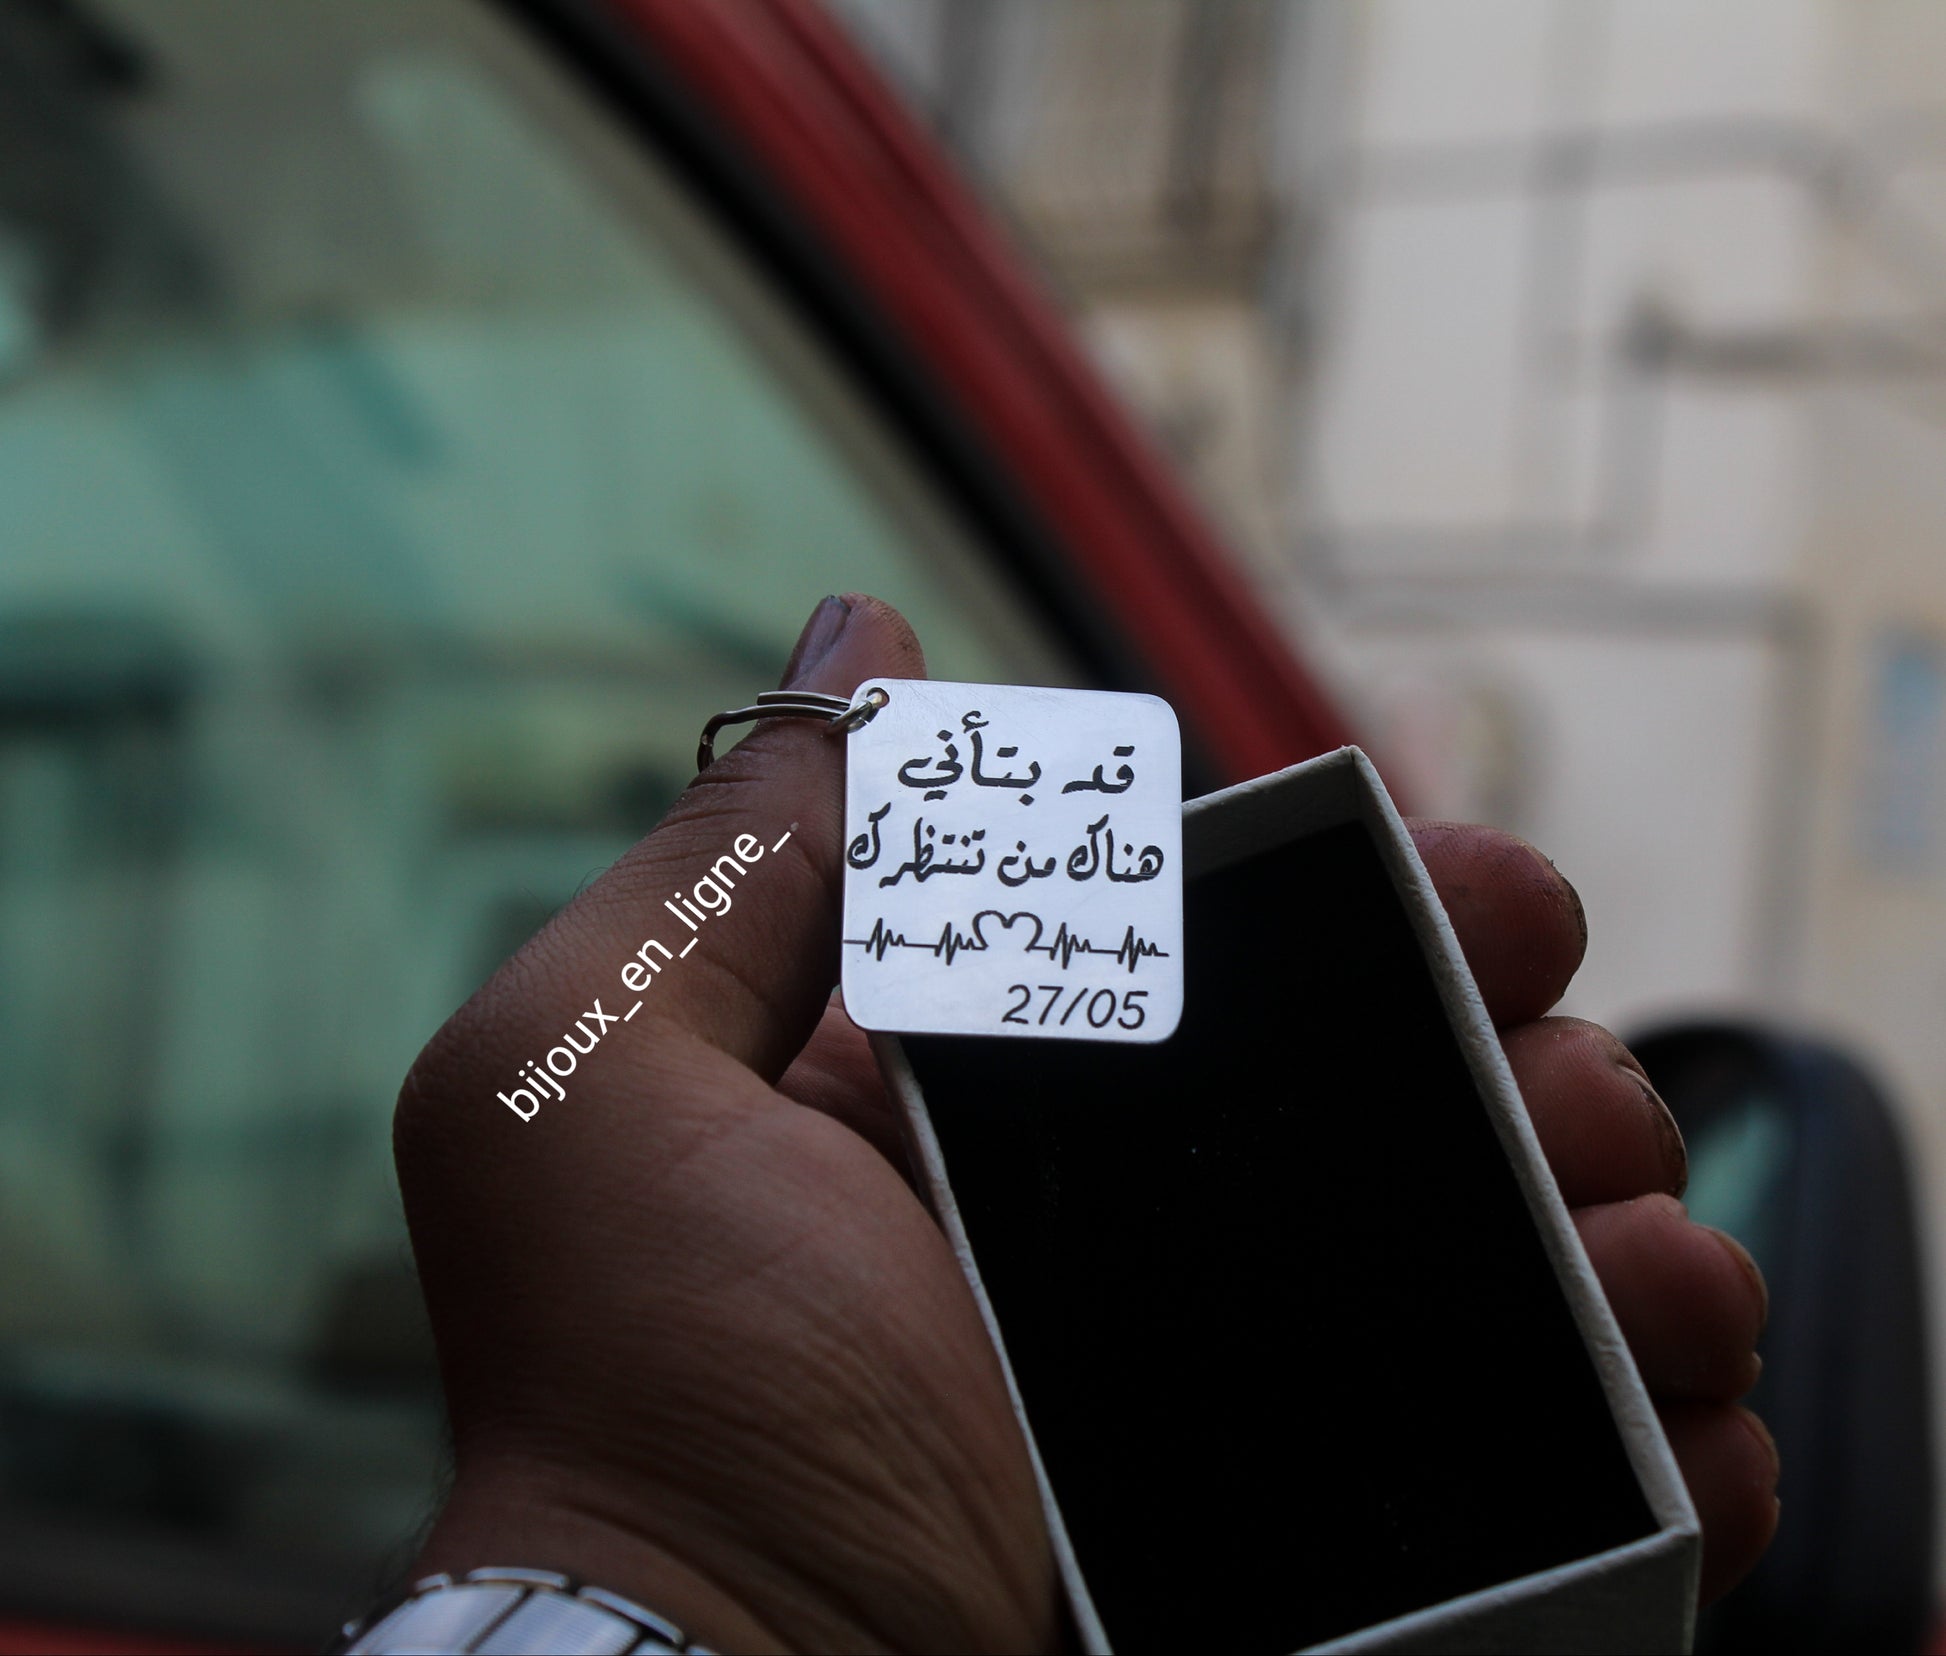 قد بتأني
هناك من تنتظرك
27/05
bijoux_en_ligne_